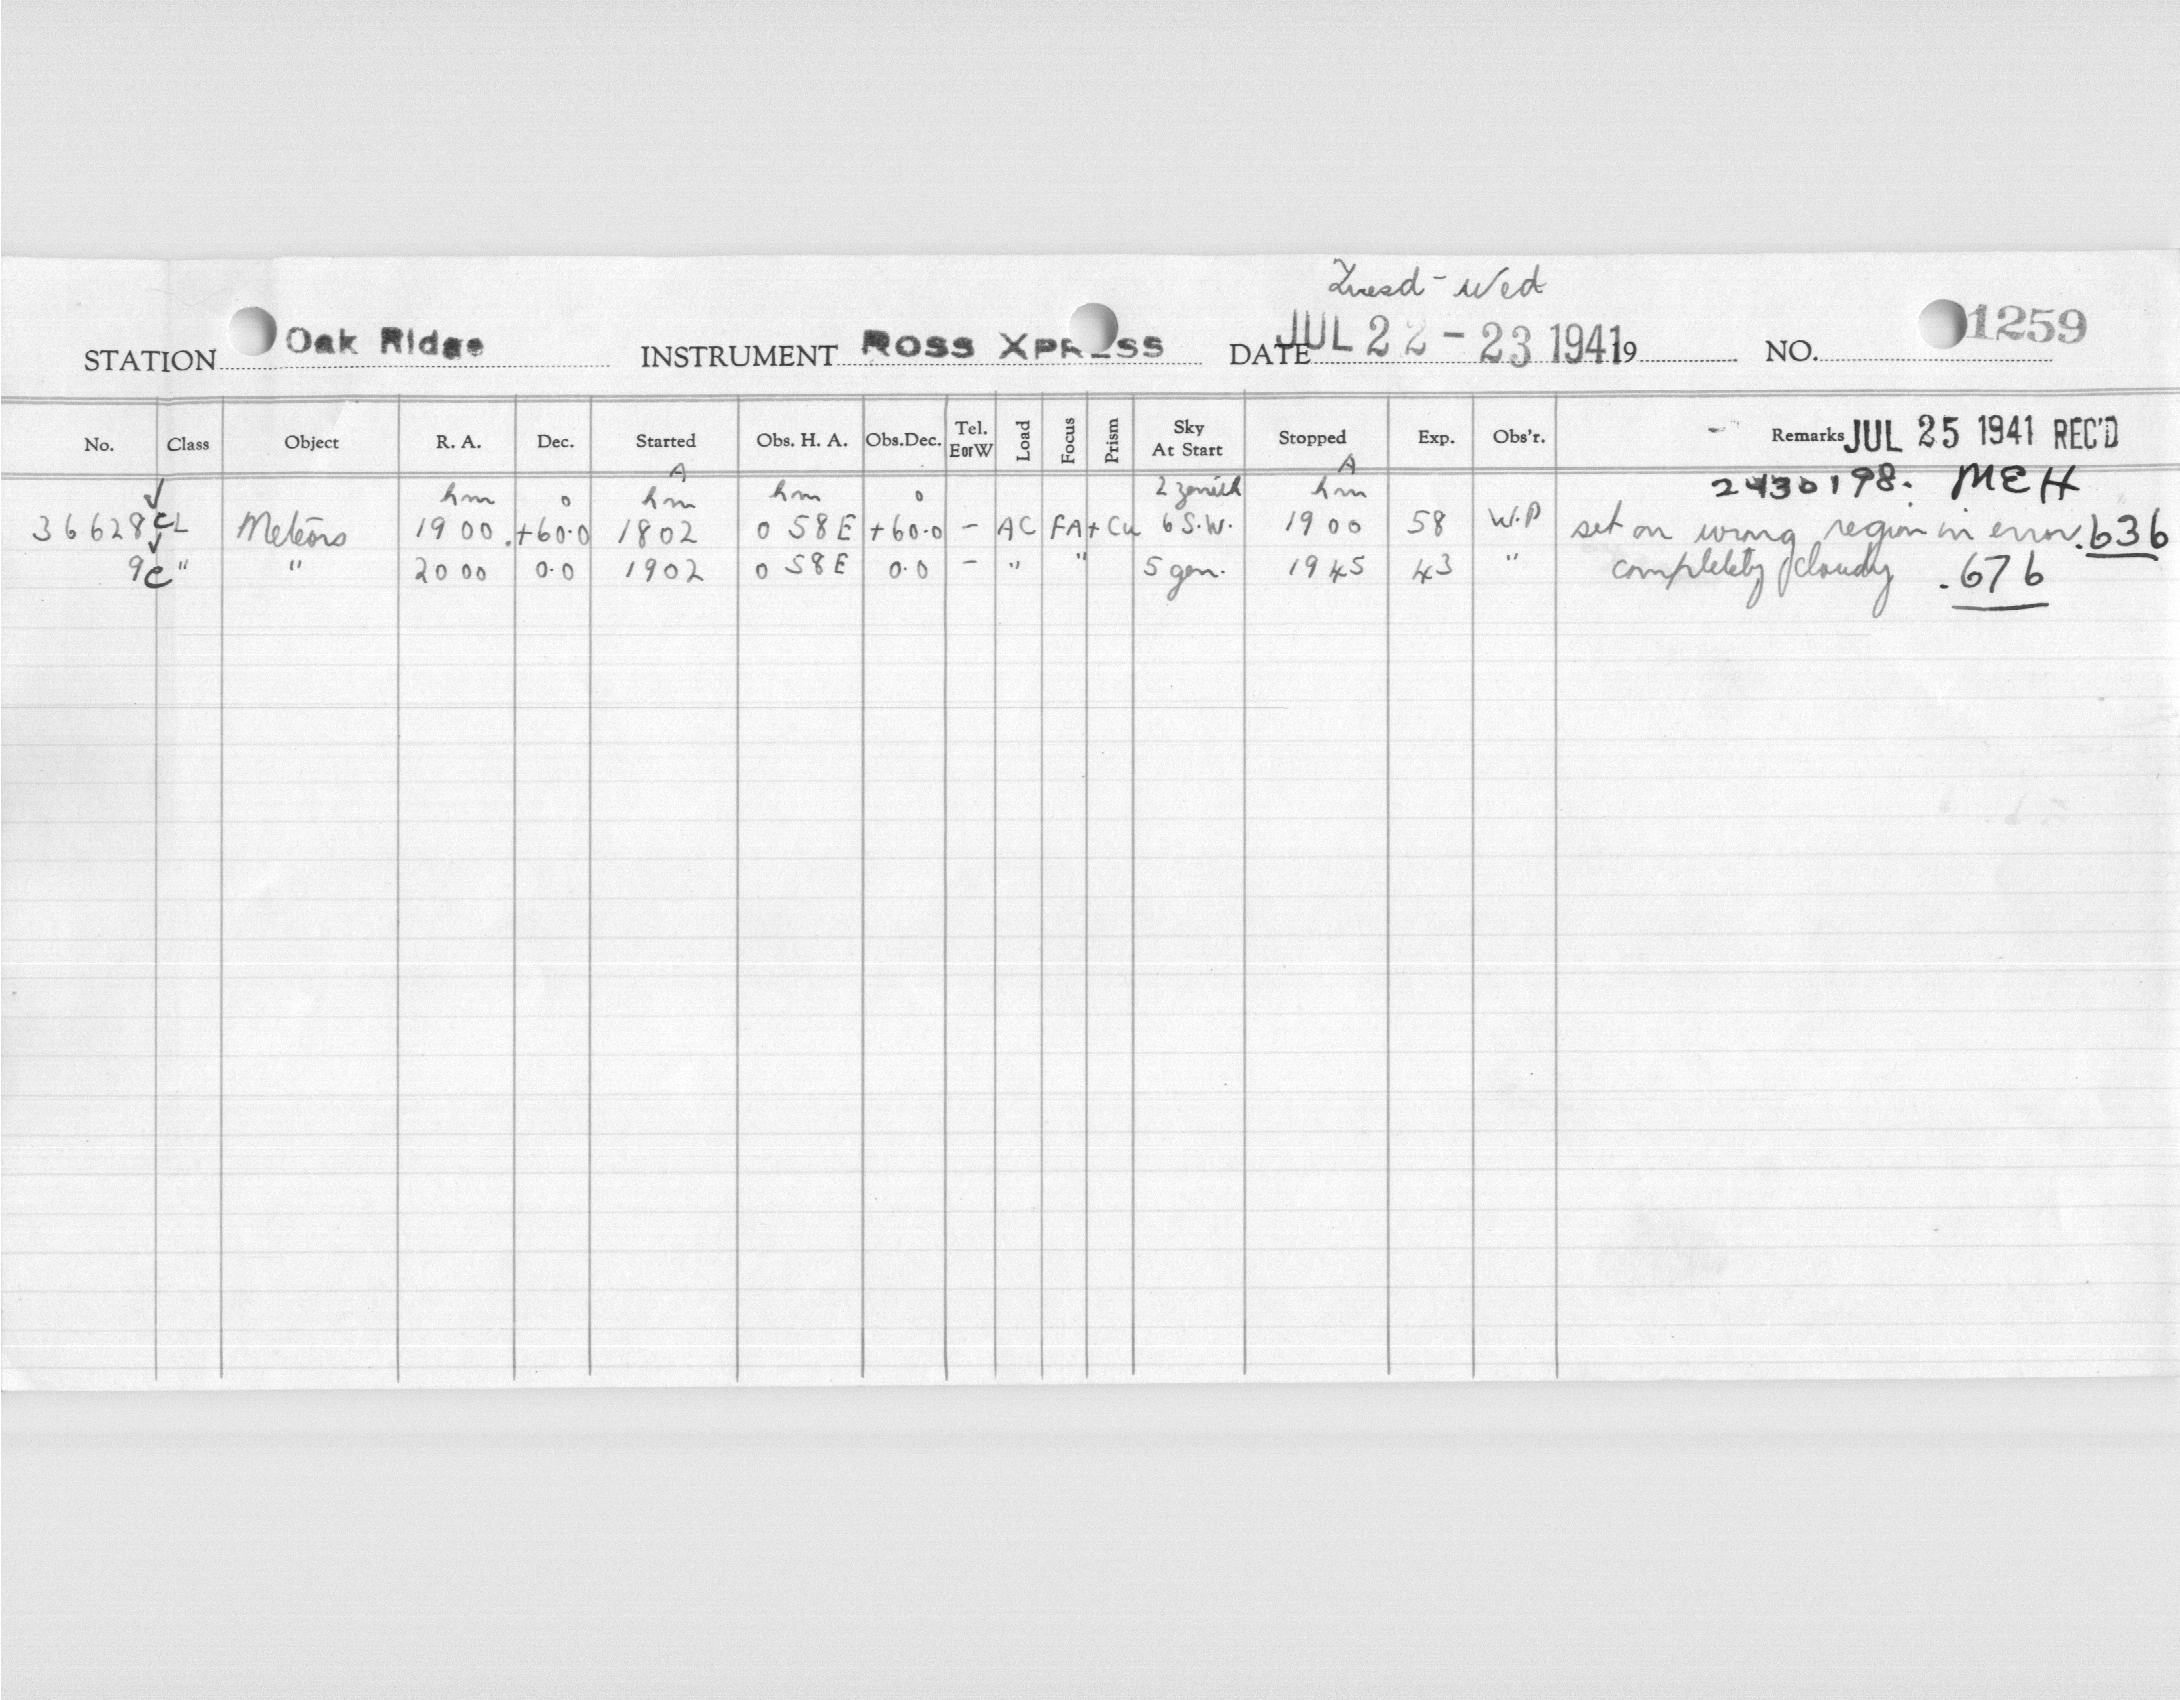 Tuesd - Wed
STATION Oak Ridge INSTRUMENT Ross Xpress DATE JUL 22 - 23 1941 19 NO. 1259
No. Class Object R. A. Dec. Started Obs. H. A. Obs.Dec. Tel. E or W Load Focus Prism Sky At Start Stopped Exp. Obs'r. Remarks JUL 25 1941 REC'D
A A
hm o hm hm o 2 zenith hm 2430198. MEH
36628 c L Meteors 19 00 +60.0 1802 0 58 E +60.0 - AC FA + Cu 6 S.W. 19 00 58 W.P set on wrong region in error .636
9 c " " 20 00 0.0 1902 0 58 E 0.0 - " " 5 gen. 19 45 43 " completely cloudy .676